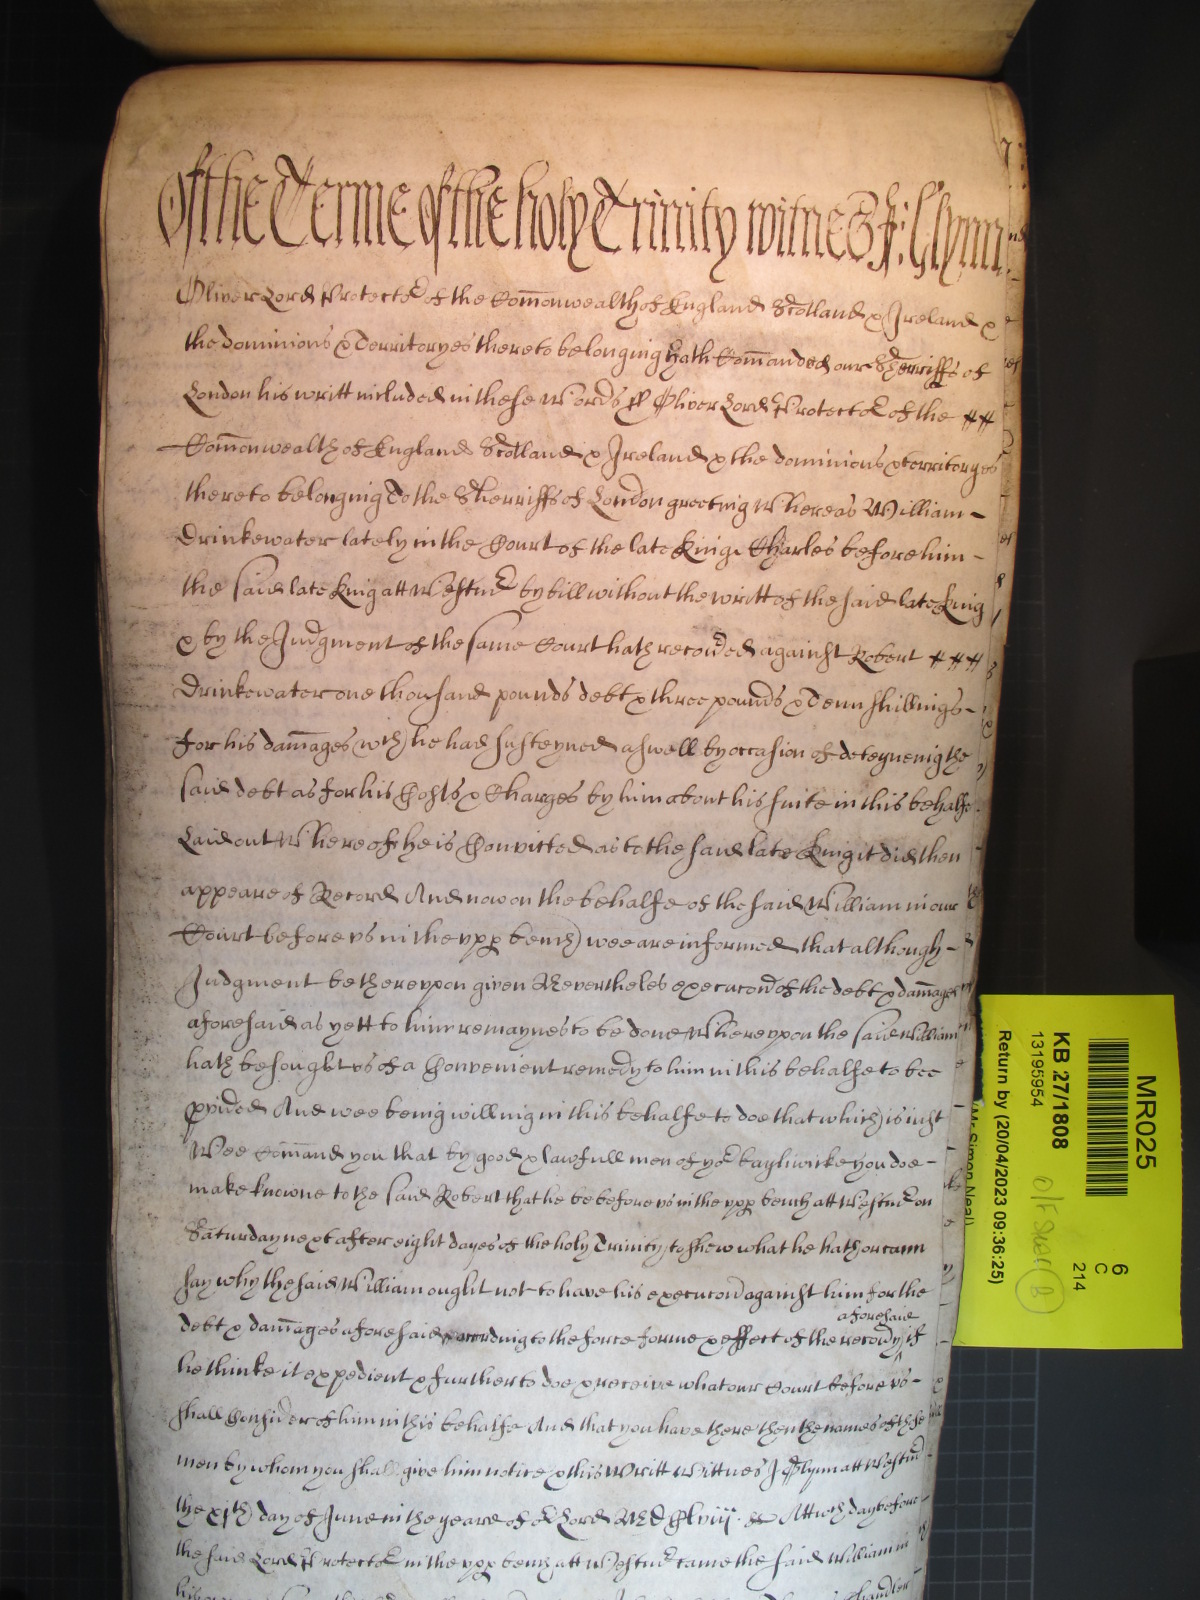 Of the Terme of the holy Trinity witnes J: Glynn
Oliver Lord Protector of the Com̄onwealth of England Scotland & Ireland &
the dominions & Territoryes thereto belonging hath Com̄anded our Sherriffs of
London his writt included in these Words ss Oliver Lord Protector of the
Com̄onwealth of England Scotland & Ireland & the dominions & territoryes
thereto belonging To the Sherriffs of London greeting Whereas William
Drinkewater lately in the Court of the late King Charles before him
the said late King att Westmr by bill without the writt of the said late King
& by the Judgment of the same Court hath recoũed against Robert
Drinkewater one thousand pounds debt & three pounds & Tenn shillings
for his dam̄ages wch he had susteyned aswell by occasion of deteyneing the
said debt as for his Costs & Charges by him about his suite in this behalfe
Laid out Whereof he is Convicted as to the said late King it did then
appeare of Record And now on the behalfe of the said William in our
Court before vs in the vpp bench wee are informed that although
Judgment be therevpon given Nevertheles execucoñ of the debt & dam̄ages
aforesaid as yett to him remaynes to be done Wherevpon the said William
hath besought vs of a Convenient remedy to him in this behalfe to bee
pvided And wee being willing in this behalfe to doe that which is iust
Wee Com̄and you that by good & lawfull men of yor bayliwicke you doe
make knowne to the said Robert that he be before vs in the vpp bench att Westmr on
Saturday next after eight dayes of the holy Trinity to shew what he hath or cann
say why the said William ought not to have his execucoñ against him for the
debt & dam̄ages aforesaid according to the force forme & effect of the recoũy aforesaid if
he thinke it expedient & further to doe & receive what our Court before vs
shall Consider of him in this behalfe And that you have there then the names of those
men by whom you shall give him notice & this Writt Wittnes J Glynn att Westmr
the xjth day of June in the yeare of or Lord MDClviij. Att wch day before
the said Lord Protector in the vpp bench att Westmr came the said William in
MR025
6
C
214
KB 27/1808
13195954
Return by (20/04/2023 09:36:25)
(Mr Simon Neal)